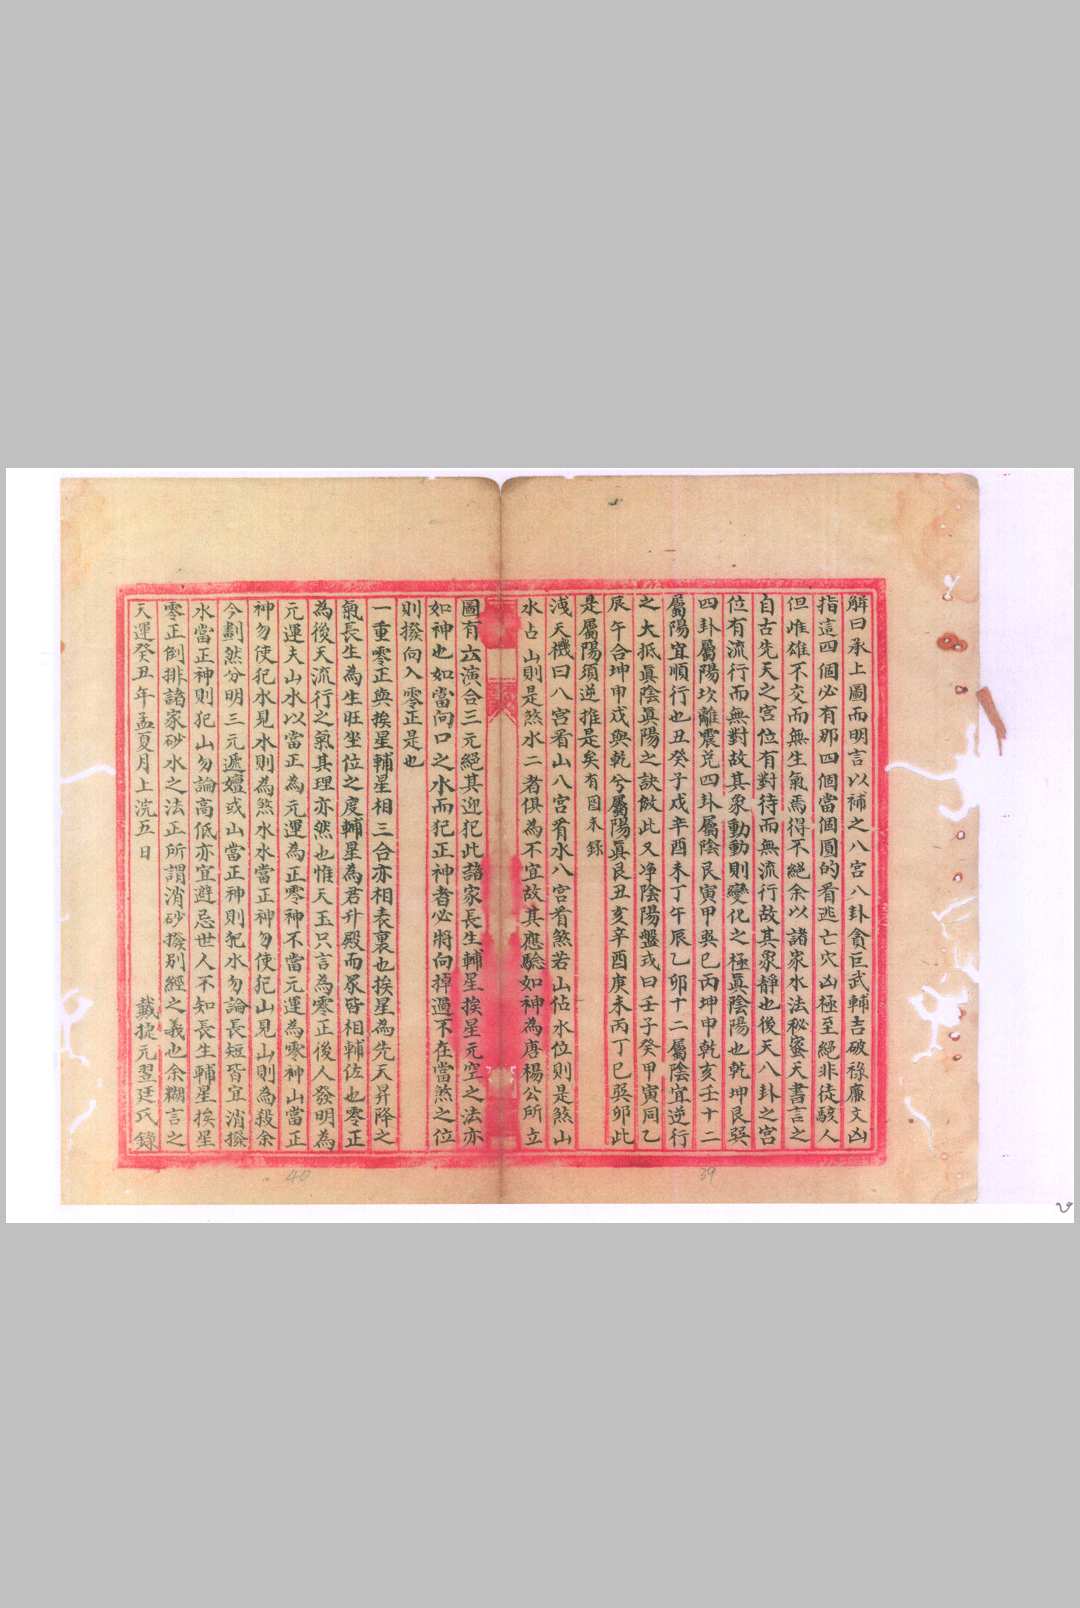 解曰承上圖而明言以補之八宮八卦貪巨武輔吉破祿廉文凶
指這四個必有那四個當個圓的看逃亡穴凶極至絕非徒駭人
但雌雄不交而無生氣焉得不絕余以諸家水法秘蜜天書言之
自古先天之宮位有對待而無流行故其象靜也後天八卦之宮
位有流行而無對故其象動動則變化之極眞陰陽也乾坤艮巽
四卦屬陽坎離震兌四卦屬陰艮寅甲巽巳丙坤申乾亥壬十二
屬陽宜順行也丑癸子戌辛酉未丁午辰乙卯十二屬陰宜逆行
之大抵眞陰眞陽之訣倣此又凈陰陽盤或曰壬子癸甲寅同乙
辰午合坤申戌與乾兮屬陽眞艮丑亥辛酉庚未丙丁巳巽卯此
是屬陽須逆推是矣有圖未錄
淺天機曰八宮看山八宮看水八宮看煞若山佔水位則是煞山
水占山則是煞水二者俱為不宜故其應驗如神為唐楊公所立
圖有太演合三元絕其迎犯此諸家長生輔星挨星元空之法亦
如神也如當向口之水而犯正神者必將向掉過不在當煞之位
則撥向入零正是也
一重零正與挨星輔星相三合亦相表裏也挨星為先天昇降之
氣長生為生旺坐位之度輔星為君升殿而衆皆相輔佐也零正
為後天流行之氣其理亦然也惟天玉只言為零正後人發明為
元運夫山水以當正為元運為正零神不當元運為零神山當正
神勿使犯水見水則為煞水水當正神勿使犯山見山則為殺余
今劃然分明三元遞嬗或山當正神則犯水勿論長短皆宜消撥
水當正神則犯山勿論高低亦宜避忌世人不知長生輔星挨星
零正倒排諸家砂水之法正所謂消砂撥別經之義也余糊言之
天運癸丑年孟夏月上浣五日　戴捷元翌廷氏錄
40
39